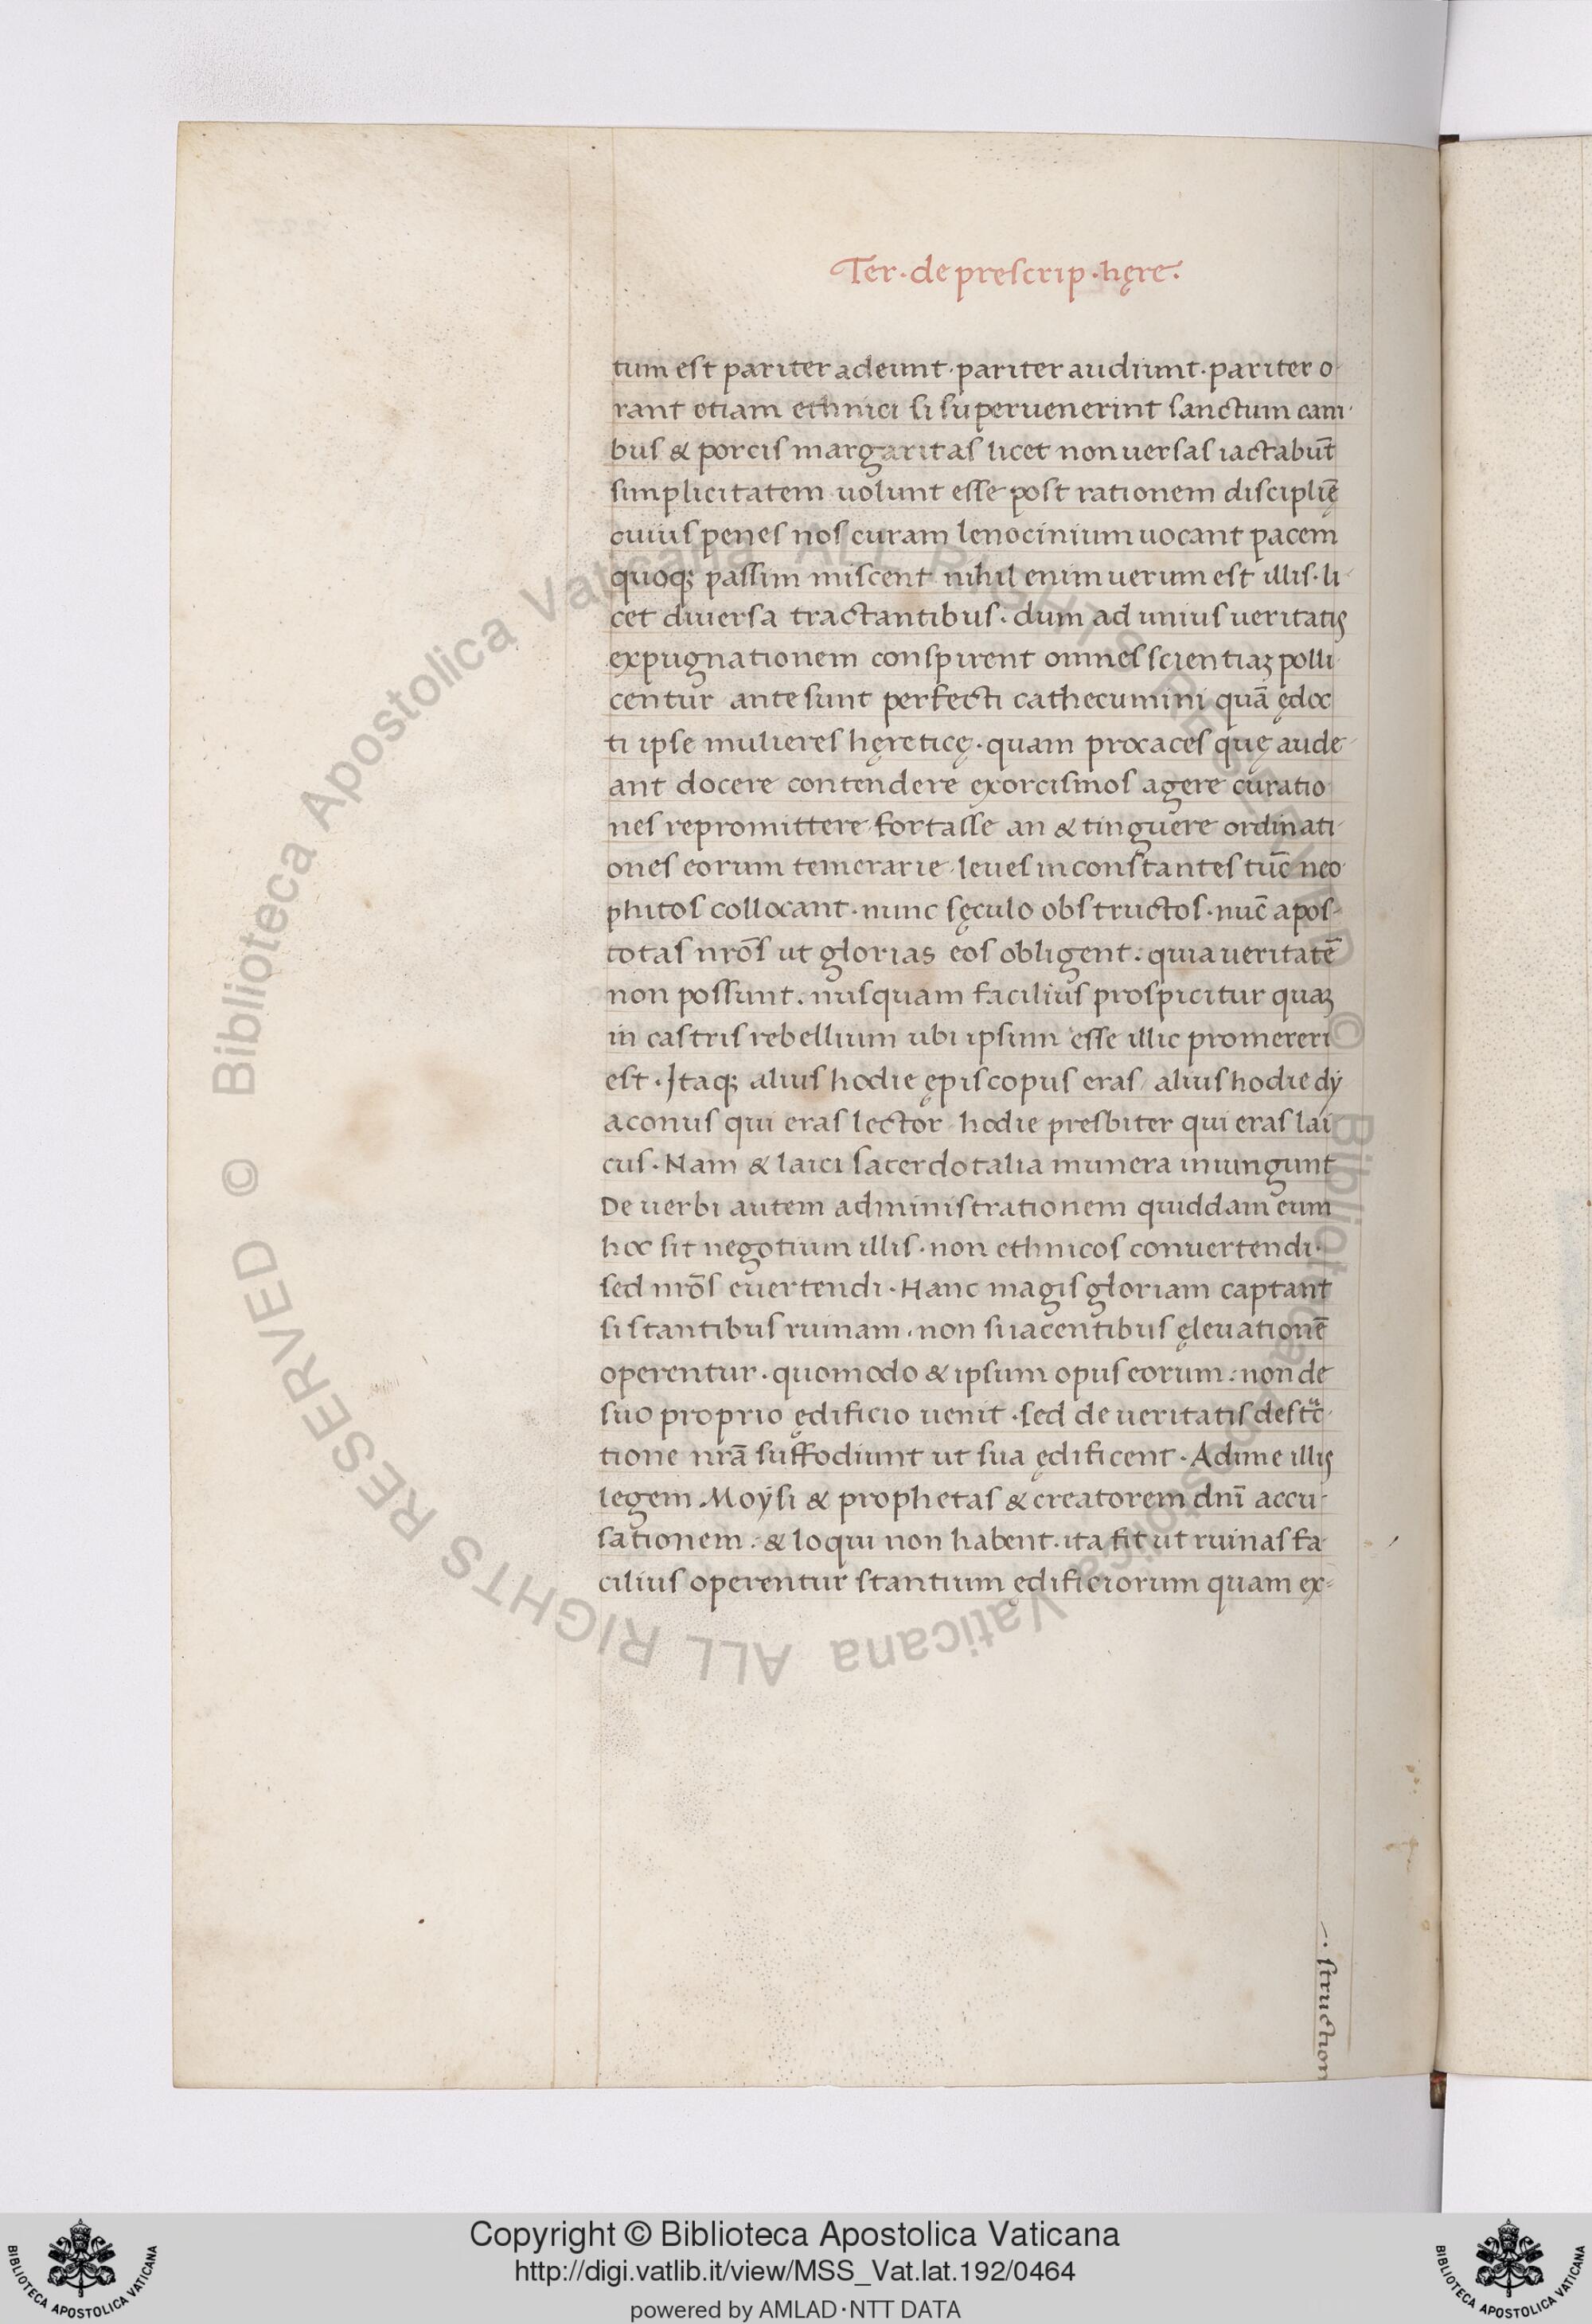 Ter · de prescrip · hęre ·
tum est pariter adeunt · pariter audiunt · pariter o-
rant etiam ethnici si superuenerint sanctum cani-
bus & porcis margaritas licet non uersas iactabūt
simplicitatem uolunt esse post rationem disciplīę
cuius penes nos curam lenocinium uocant pacem
quoqꝫ passim miscent nihil enim uerum est illis · li-
cet diuersa tractantibus · dum ad unius ueritatis
expugnationem conspirent omnes scientiaꝫ polli-
centur ante sunt perfecti cathecumini quā ędoc
ti ipse mulieres hęreticę · quam procaces quę aude-
ant docere contendere exorcismos agere curatio
nes repromittere fortasse an & tinguere ordinati-
ones eorum temerarie leues inconstantes tūc neo-
phitos collocant · nunc sęculo obstructos · nūc apos-
totas nrōs ut glorias eos obligent · quia ueritatē
non possunt . nusquam facilius prospicitur quaꝫ
in castris rebellium ubi ipsum esse illic promereri
est · Itaqꝫ alius hodie ępiscopus eras alius hodie dÿ
aconus qui eras lector hodie presbiter qui eras lai
cus · Nam & laici sacerdotalia munera iniungunt
De uerbi autem administrationem quiddam eum
hoc sit negotium illis · non ethnicos conuertendi ·
sed nrōs euertendi · Hanc magis gloriam captant
si stantibus ruinam . non suacentibus ęleuationē
operentur · quomodo & ipsum opus eorum : non de
suo proprio ędificio uenit · sed de ueritatis destͧc-
tione nrā suffodiunt ut sua ędificent · Adime illis
legem Moÿsi & prophetas & creatorem dnī accu-
sationem : & loqui non habent · ita fit ut ruinas fa-
cilius operentur stantium ędificiorum quam ex-
· struction
© Biblioteca Apostolica Vaticana ALL RIGHTS RESERVED © Biblioteca Apostolica Vaticana ALL RIGHTS RESERVED
Copyright © Biblioteca Apostolica Vaticana
http://digi.vatlib.it/view/MSS_Vat.lat.192/0464
powered by AMLAD·NTT DATA
BIBLIOTECA APOSTOLICA VATICANA
BIBLIOTECA APOSTOLICA VATICANA